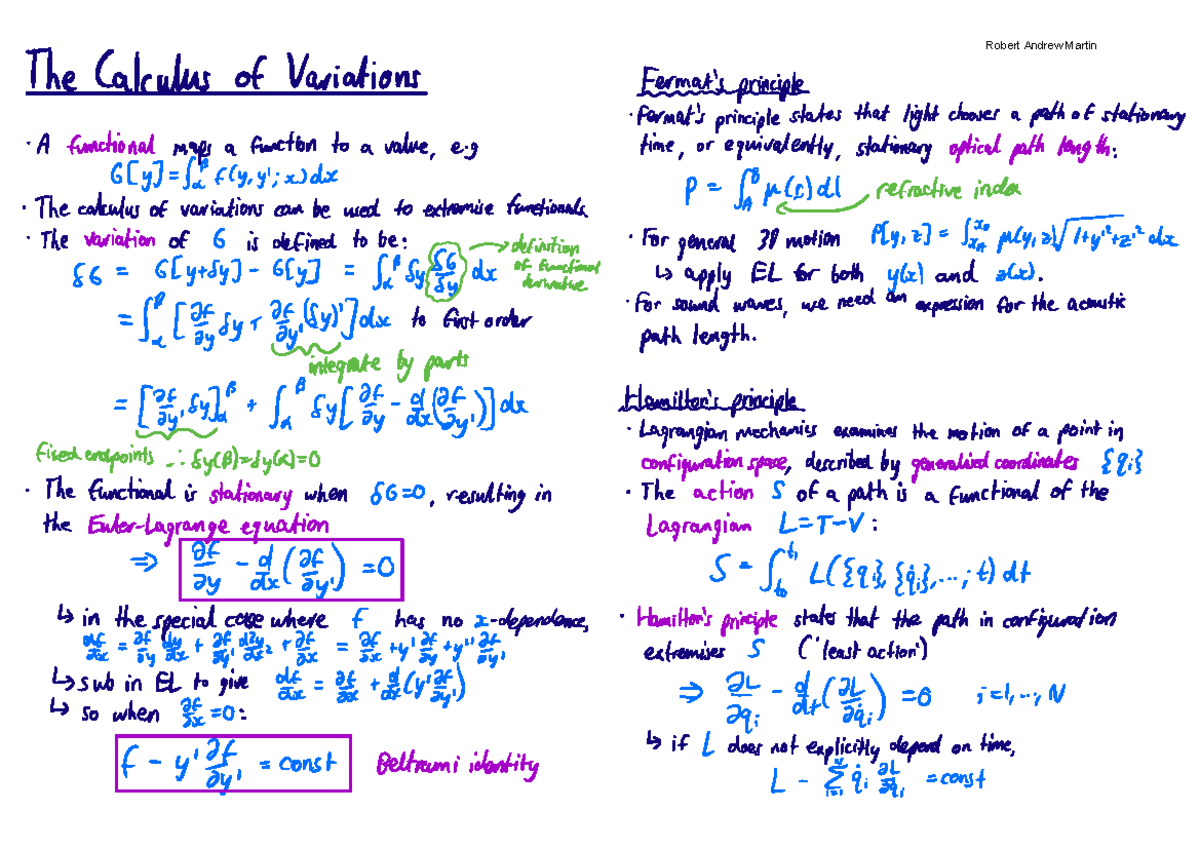 Robert Andrew Martin
The Calculus of Variations
· A functional maps a function to a value, e.g
G[y] = ∫_α^β f(y, y'; x) dx
· The calculus of variations can be used to extremise functionals
· The variation of G is defined to be:
δG = G[y+δy] - G[y] = ∫_α^β δy δG/δy dx
→ definition of functional derivative
= ∫_α^β [∂f/∂y δy + ∂f/∂y' (δy)'] dx to first order
integrate by parts
= [∂f/∂y' δy]_α^β + ∫_α^β δy [∂f/∂y - d/dx(∂f/∂y')] dx
fixed endpoints ∴ δy(β)=δy(α)=0
· The functional is stationary when δG=0, resulting in
the Euler-Lagrange equation
⇒ ∂f/∂y - d/dx(∂f/∂y') = 0
↳ in the special case where f has no x-dependence,
df/dx = ∂f/∂y dy/dx + ∂f/∂y' d²y/dx² + ∂f/∂x = ∂f/∂x + y' ∂f/∂y + y'' ∂f/∂y'
↳ sub in EL to give df/dx = ∂f/∂x + d/dx(y' ∂f/∂y')
↳ so when ∂f/∂x = 0:
f - y' ∂f/∂y' = const Beltrami identity
Fermat's principle
· Fermat's principle states that light chooses a path of stationary
time, or equivalently, stationary optical path length:
P = ∫_A^B μ(r) dl ← refractive index
· For general 3D motion P[y, z] = ∫_{x_A}^{x_B} μ(y, z)√(1+y'²+z'²) dx
↳ apply EL for both y(x) and z(x).
· For sound waves, we need an expression for the acoustic
path length.
Hamilton's principle
· Lagrangian mechanics examines the motion of a point in
configuration space, described by generalised coordinates {qᵢ}
· The action S of a path is a functional of the
Lagrangian L = T - V :
S = ∫_{t₀}^{t₁} L({qᵢ}, {q̇ᵢ}, ...; t) dt
· Hamilton's principle states that the path in configuration
extremises S ('least action')
⇒ ∂L/∂qᵢ - d/dt(∂L/∂q̇ᵢ) = 0 i=1, ..., N
↳ if L does not explicitly depend on time,
L - Σ_{i=1}^N q̇ᵢ ∂L/∂q̇ᵢ = const